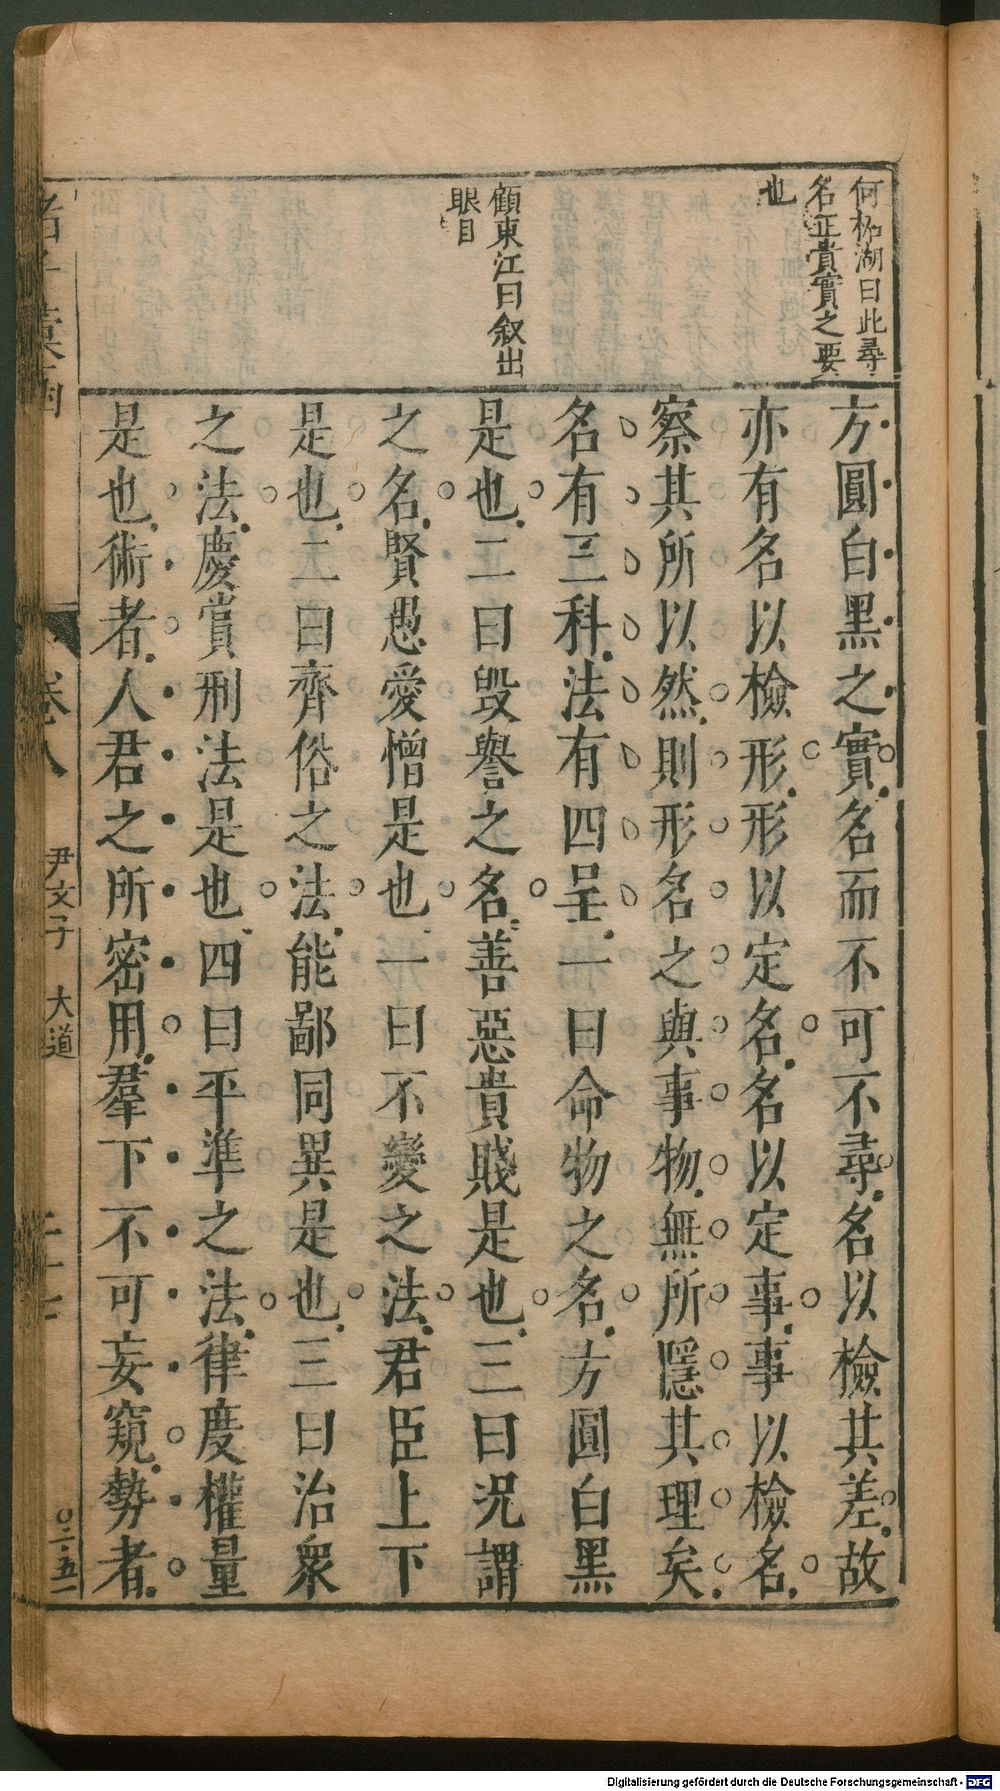 何柘湖曰此尋
名正貴實之要
也
顧東江曰叙出
眼目
方圓白黑之實名而不可不尋名以檢其差故
亦有名以檢形形以定名名以定事事以檢名
察其所以然則形名之與事物無所隱其理矣
名有三科法有四呈一曰命物之名方圓白黑
是也二曰毀譽之名善惡貴賤是也三曰況謂
之名賢愚愛憎是也一曰不變之法君臣上下
是也二曰齊俗之法能鄙同異是也三曰治衆
之法慶賞刑法是也四曰平準之法律度權量
是也術者人君之所密用羣下不可妄窺勢者
卷八
尹文子 大道
二十七
〇二五一
Digitalisierung gefördert durch die Deutsche Forschungsgemeinschaft - DFG